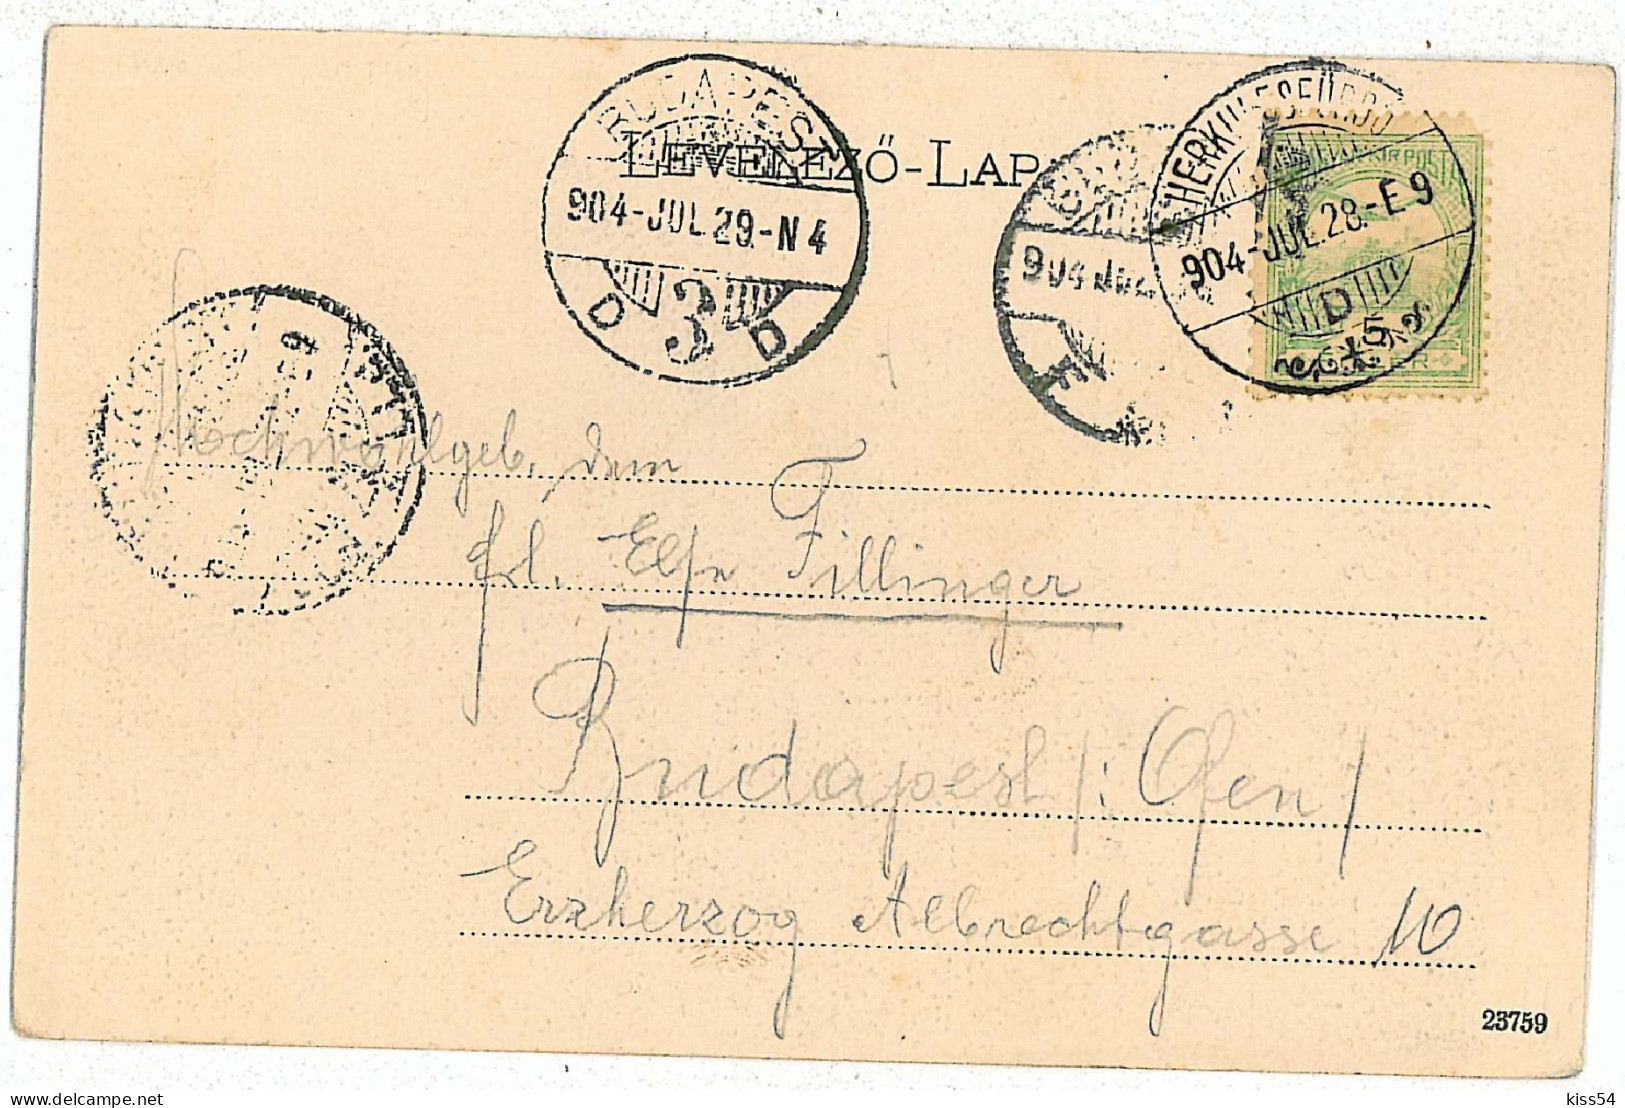 LEVELEZŐ-LAP
BUDAPEST
904-JUL.29.-N4
D 3 D
904 JUL
HERKULESFÜRDŐ
904-JUL.28.-E9
D
5
Hochwohlgeb. dem
Frl. Else Fillinger
Budapest /: Ofen /
Erzherzog Albrechtgasse 10
23759
delcampe.net
kiss54